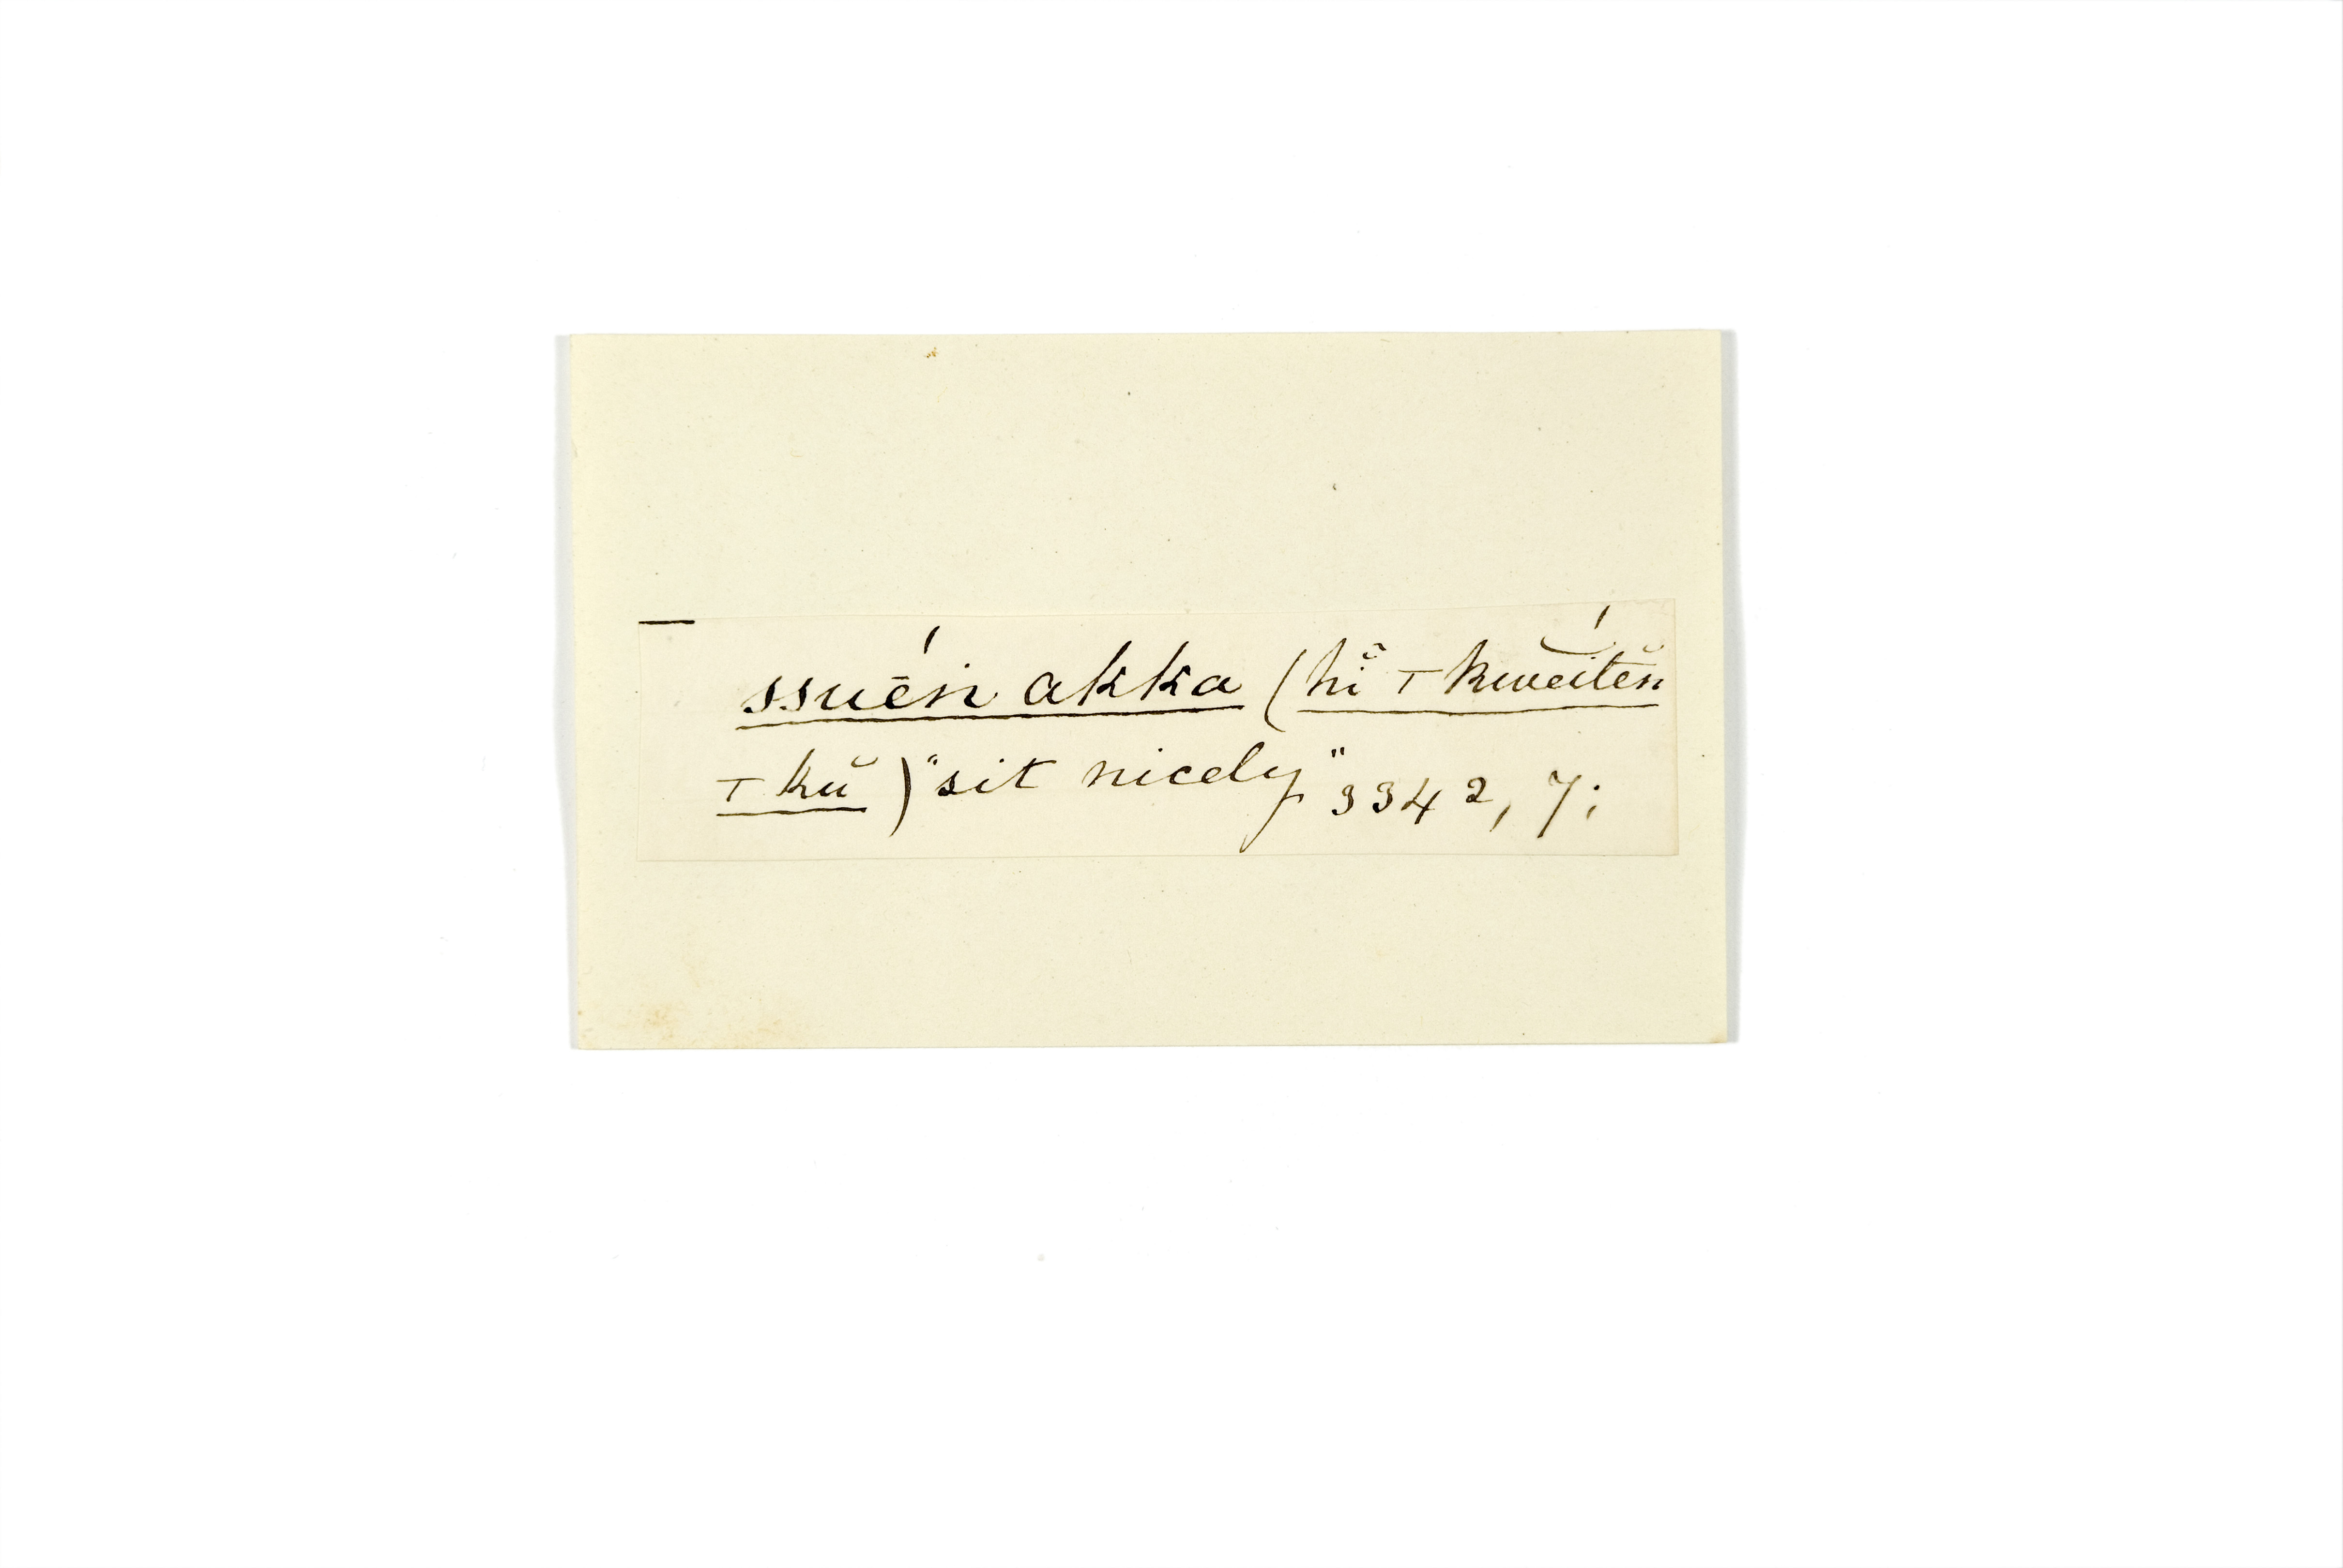 ssuḗn akka (hĭ ⊤ kwéitĕn
⊤ kŭ) "sit nicely" 3342, 7;